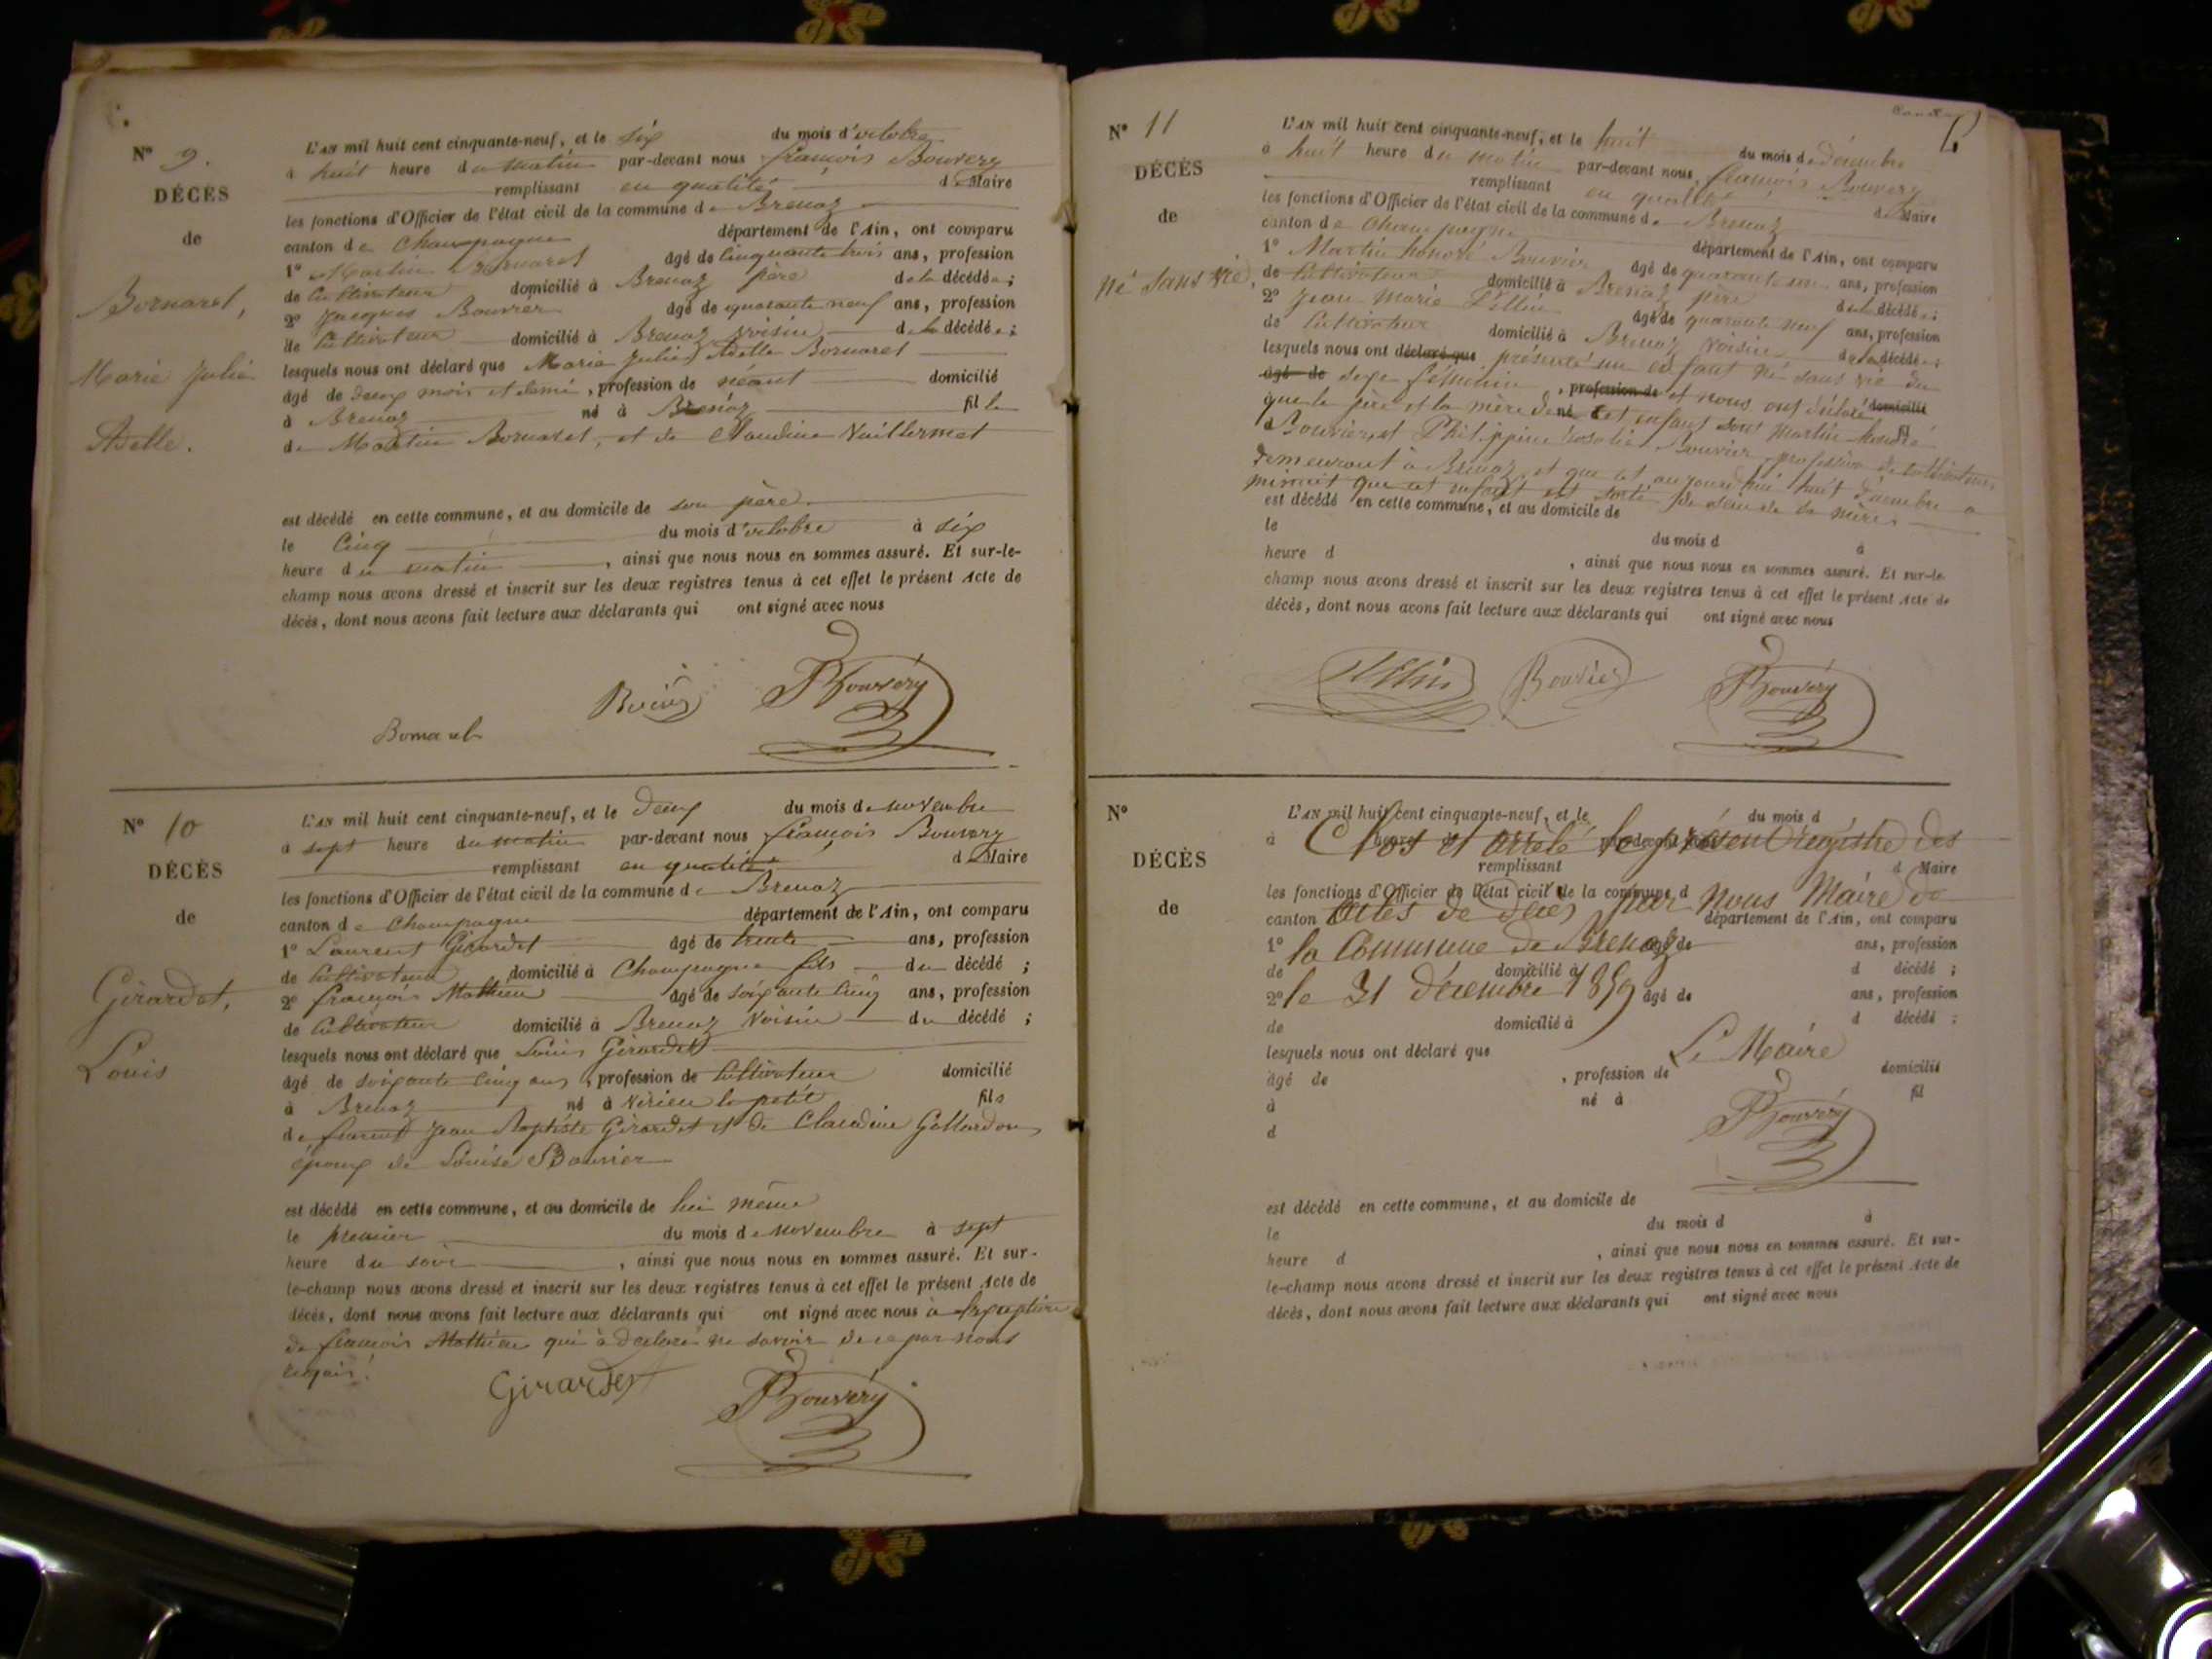 N° 9.
DÉCÈS
de
Bornaret,
Marie Julie
Adelle.
L'AN mil huit cent cinquante-neuf, et le six du mois d'octobre
à huit heure du matin par-devant nous françois Bouvery
remplissant en qualité de Maire
les fonctions d'Officier de l'état civil de la commune de Brenaz
canton de Champagne département de l'Ain, ont comparu
1° Martin Bornaret âgé de cinquante trois ans, profession
de Cultivateur domicilié à Brenaz père de la décédée;
2° Jacques Bouvier âgé de quarante neuf ans, profession
de Cultivateur domicilié à Brenaz voisin de la décédée;
lesquels nous ont déclaré que Marie Julie Adelle Bornaret
âgé de deux mois et demi, profession de néant domicilié
à Brenaz né à Brenaz fille
de Martin Bornaret, et de Claudine Vuillermet
est décédé en cette commune, et au domicile de son père
le cinq du mois d'octobre à six
heure du matin, ainsi que nous nous en sommes assuré. Et sur-le-
champ nous avons dressé et inscrit sur les deux registres tenus à cet effet le présent Acte de
décès, dont nous avons fait lecture aux déclarants qui ont signé avec nous
Bornaret Bouvery
N° 10
DÉCÈS
de
Girardet,
Louis
L'AN mil huit cent cinquante-neuf, et le deux du mois de novembre
à sept heure du matin par-devant nous françois Bouvery
remplissant en qualité de Maire
les fonctions d'Officier de l'état civil de la commune de Brenaz
canton de Champagne département de l'Ain, ont comparu
1° Laurent Girardet âgé de trente ans, profession
de Cultivateur domicilié à Champagne fils du décédé;
2° françois Mathieu âgé de soixante cinq ans, profession
de Cultivateur domicilié à Brenaz voisin du décédé;
lesquels nous ont déclaré que Louis Girardet
âgé de soixante cinq ans, profession de Cultivateur domicilié
à Brenaz né à Virieu le petit fils
de Jean Baptiste Girardet et de Claudine Gallardon
époux de Louise Bouvier
est décédé en cette commune, et au domicile de lui même
le premier du mois de novembre à sept
heure du soir, ainsi que nous nous en sommes assuré. Et sur-
le-champ nous avons dressé et inscrit sur les deux registres tenus à cet effet le présent Acte de
décès, dont nous avons fait lecture aux déclarants qui ont signé avec nous à l'exception
de françois Mathieu qui à déclaré ne savoir de ce par nous
requis.
Girardet Bouvery
N° 11
DÉCÈS
de
né sans vie,
L'AN mil huit cent cinquante-neuf, et le huit du mois de décembre
à huit heure du matin par-devant nous françois Bouvery
remplissant en qualité de Maire
les fonctions d'Officier de l'état civil de la commune de Brenaz
canton de Champagne département de l'Ain, ont comparu
1° Martin honoré Bouvier âgé de quarante un ans, profession
de Cultivateur domicilié à Brenaz père de la décédée;
2° Jean Marie âgé de quarante neuf ans, profession
de Cultivateur domicilié à Brenaz voisin de la décédée;
lesquels nous ont déclaré que présenté un enfant né sans vie du
âgé de sexe féminin, profession de et nous ont déclaré domicilié
que le père et la mère de né cet enfant sont Martin honoré fil
d Bouvier, et Philippine Rosalie Bouvier profession de cultivateurs
demeurant à Brenaz, et que cet aujourd'hui huit décembre a
minuit que cet enfant est sorti du sein de sa mère.
est décédé en cette commune, et au domicile de
le du mois d à
heure d , ainsi que nous nous en sommes assuré. Et sur-le-
champ nous avons dressé et inscrit sur les deux registres tenus à cet effet le présent Acte de
décès, dont nous avons fait lecture aux déclarants qui ont signé avec nous
Bouvier Bouvery
N°
DÉCÈS
de
L'AN mil huit cent cinquante-neuf, et le du mois d
à heure d par-devant nous
Clos et arrêté le présent registre des
remplissant d Maire
les fonctions d'Officier de l'état civil de la commune d
actes de décès par nous Maire de
canton département de l'Ain, ont comparu
1° la Commune de Brenaz âgé de ans, profession
de domicilié à d décédé;
2° le 31 décembre 1859 âgé de ans, profession
de domicilié à d décédé;
lesquels nous ont déclaré que Le Maire
âgé de , profession de domicilié
à né à fil
d Bouvery
est décédé en cette commune, et au domicile de
le du mois d à
heure d , ainsi que nous nous en sommes assuré. Et sur-
le-champ nous avons dressé et inscrit sur les deux registres tenus à cet effet le présent Acte de
décès, dont nous avons fait lecture aux déclarants qui ont signé avec nous